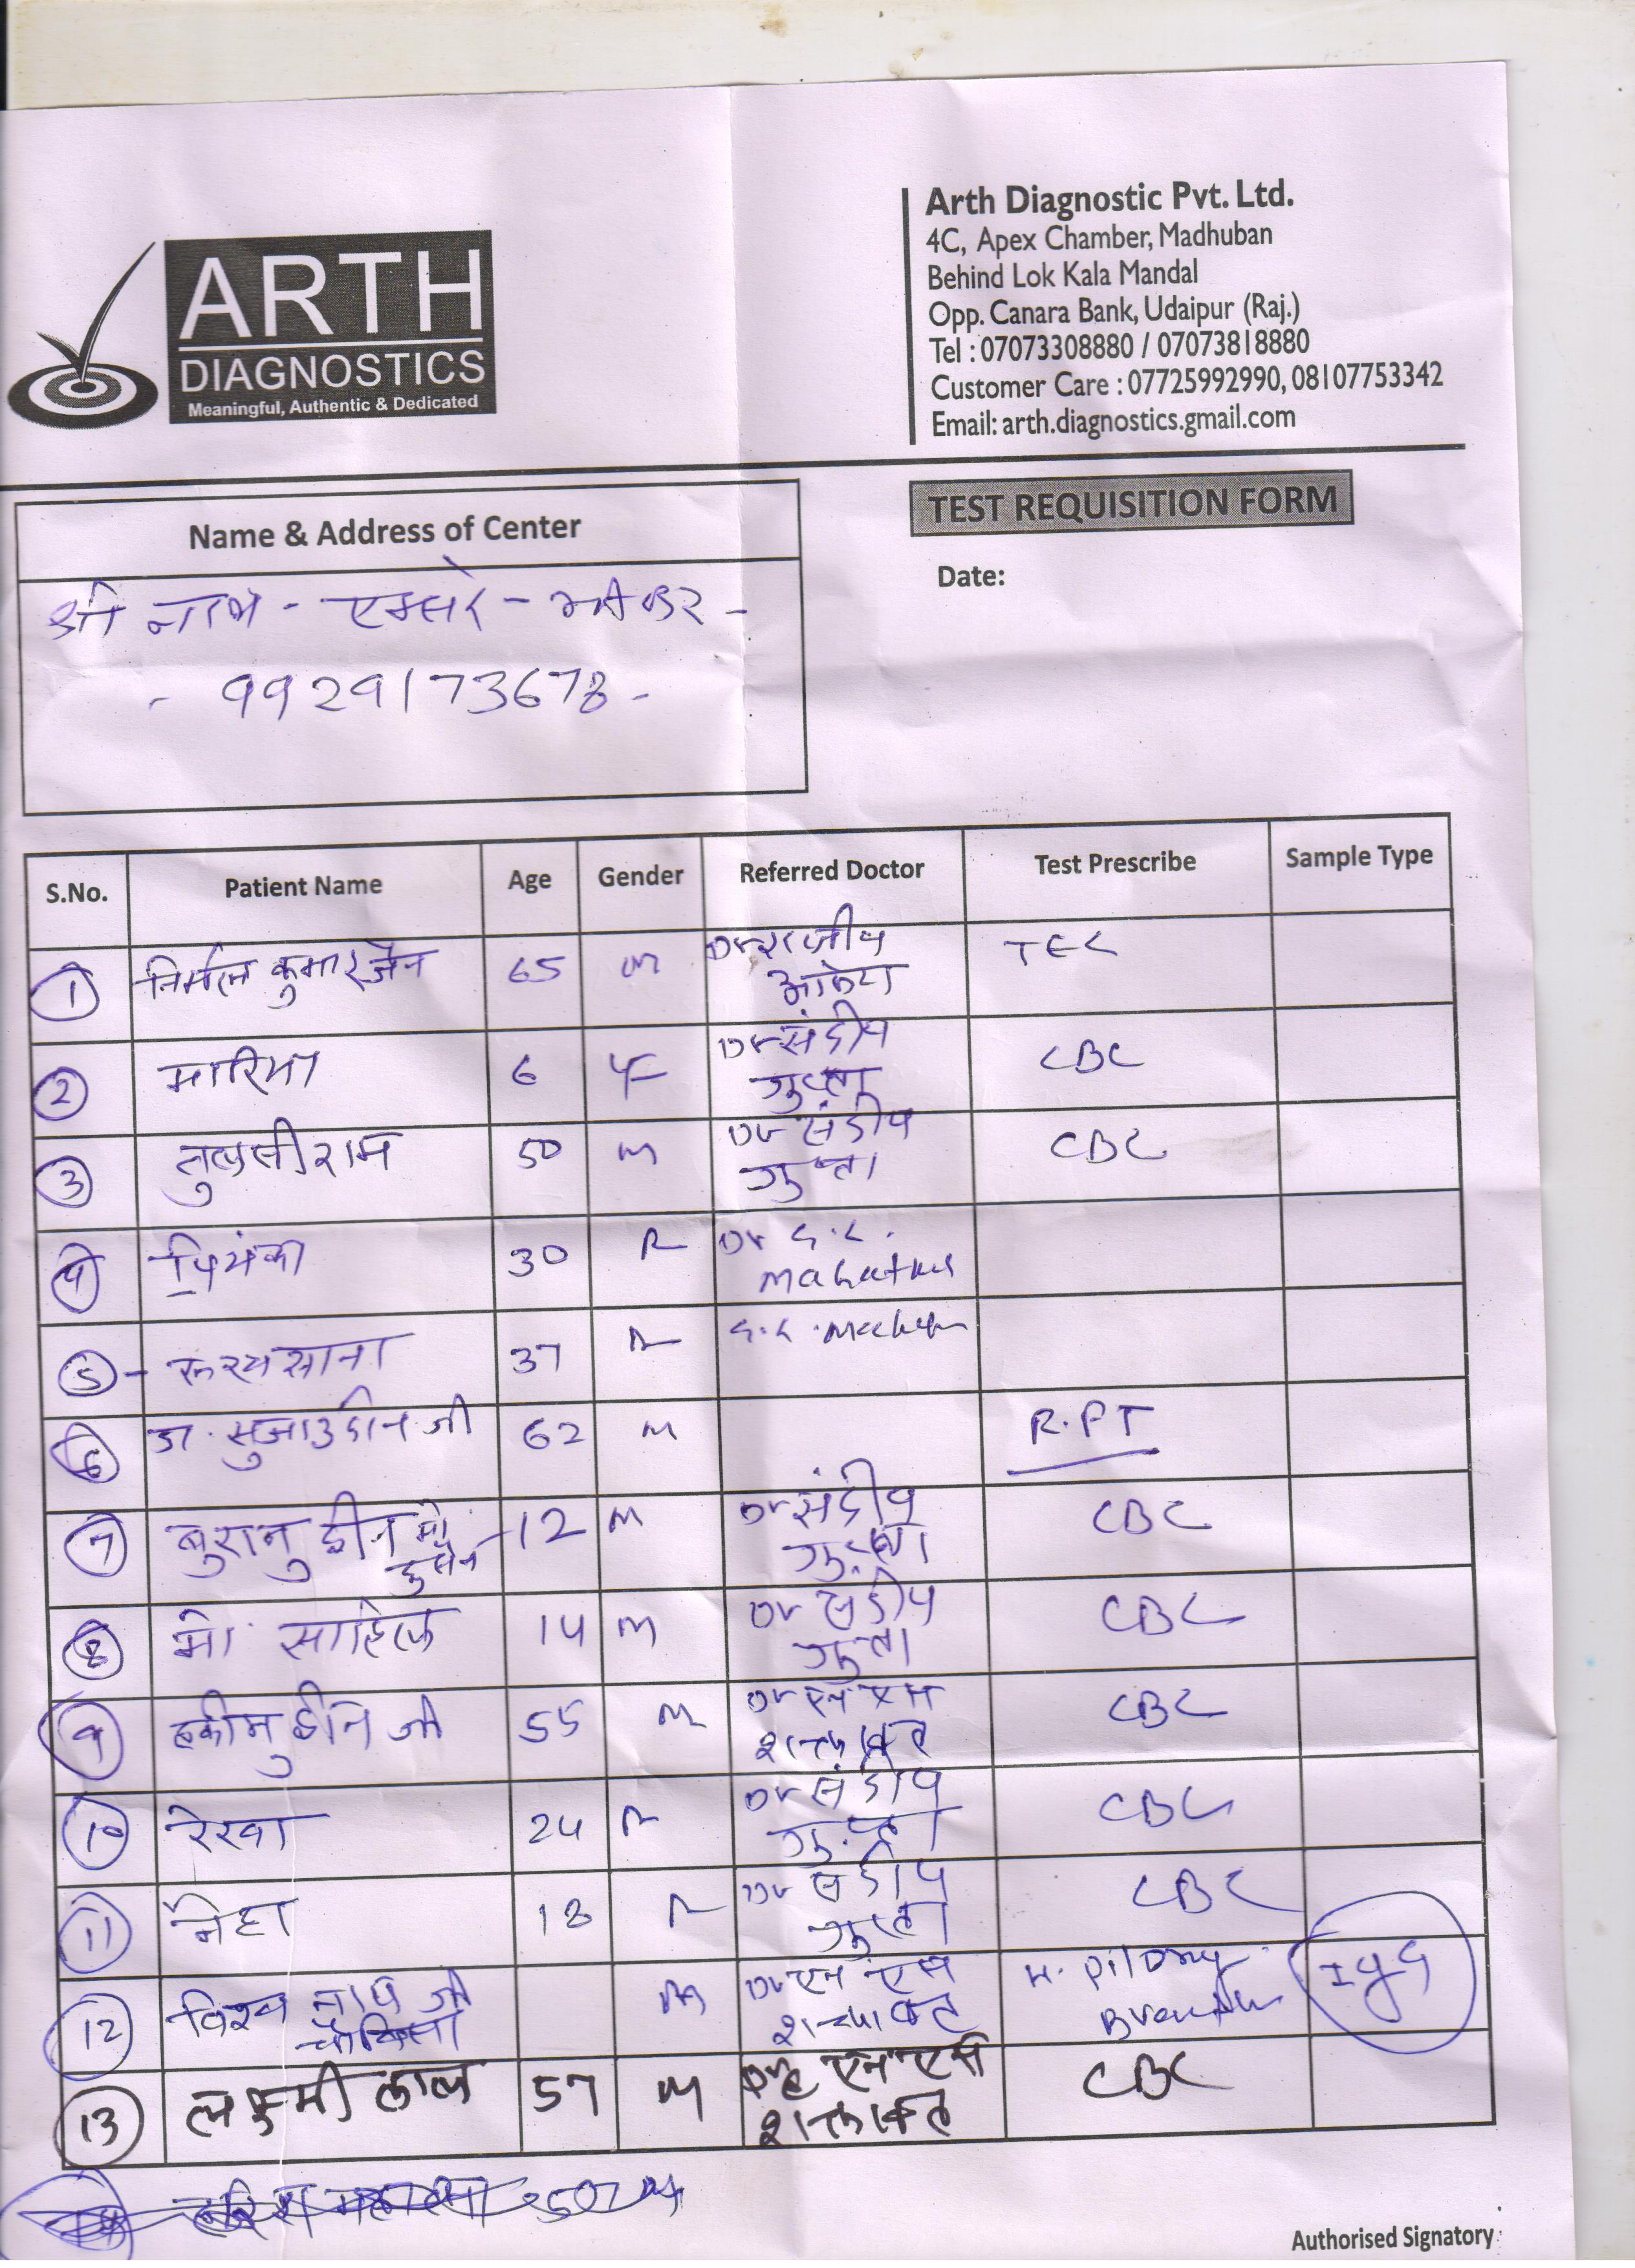 ARTH
DIAGNOSTICS
Meaningful, Authentic & Dedicated
Arth Diagnostic Pvt. Ltd.
4C, Apex Chamber, Madhuban
Behind Lok Kala Mandal
Opp. Canara Bank, Udaipur (Raj.)
Tel : 07073308880 / 07073818880
Customer Care : 07725992990, 08107753342
Email: arth.diagnostics.gmail.com
Name & Address of Center
TEST REQUISITION FORM
Date:
श्री नाथ - एक्सरे -
- 9929173678 -
S.No. Patient Name Age Gender Referred Doctor Test Prescribe Sample Type
1 निर्मल कुमार जैन 65 m Dr राजीव TEC
2 मारिया 6 F Dr संदीप गुप्ता CBC
3 तुलसीराम 50 m Dr संदीप गुप्ता CBC
4 प्रियंका 30 Dr
5 - 37
6 62 m R.FT
7 12 m Dr संदीप गुप्ता CBC
8 मो. साहिल 14 m Dr संदीप गुप्ता CBC
9 हकीमुद्दीन जी 55 m Dr एन एस शक्तावत CBC
10 रेखा 24 Dr संदीप गुप्ता CBC
11 नेहा 18 Dr संदीप गुप्ता CBC
12 विश्व नाथ जी m Dr एन एस शक्तावत IgG
13 लक्ष्मी लाल 57 m एन एस शक्तावत CBC
Authorised Signatory